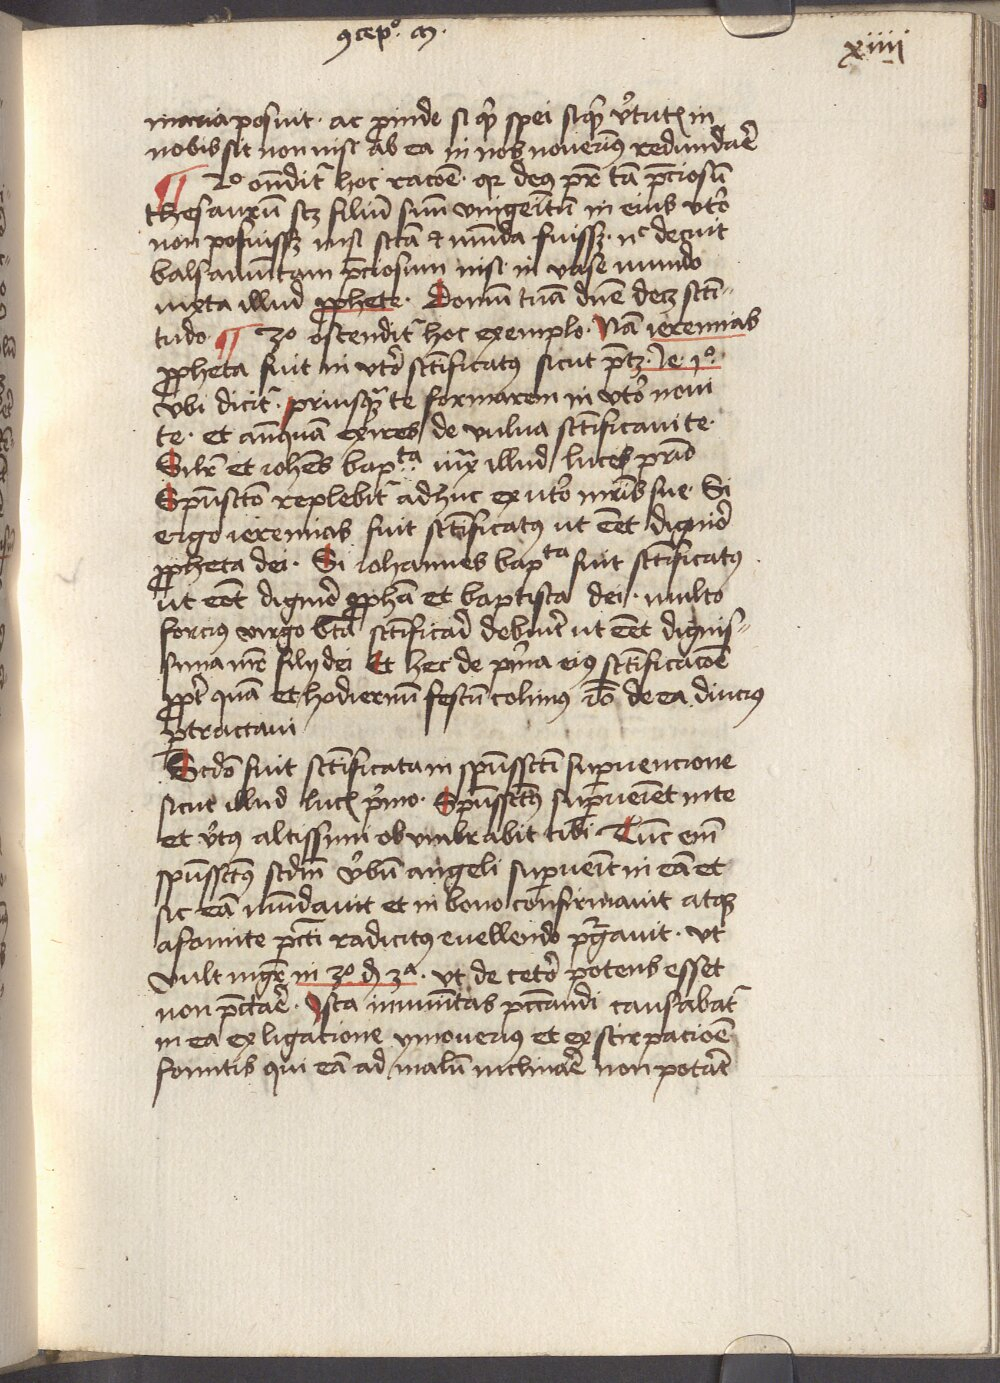 ɔcepº. m.
xiiii
maria posuit. ac ꝓinde si qͥd spei siqͥd v̓tutꝭ in
nobis sit non nisi ab ea in nos noverimꝰ redundar̄e
¶ 2º ondit᷑ hoc racōe. qr deꝰ pr̄ tā p̄ciosū
thesaurū scꝫ filiū suū vnigeītū in eius vt̓o
non posuissꝫ nisi sctā et mūda fuissꝫ. nᶜ decuit
balsamū tam p̄ciosum nisi in vase mundo
iuxta illud ꝓphete. Domū tuā dn̄e decꝫ scti-
tudo ¶ 3º ostendit᷑ hoc exemplo. Nā ieremias
ꝓpheta fuit in vt̓o sctīficatꝰ sicut pꝫ Ie. 1º.
vbi dicit᷑. priusqꝫ te formarem in vt̓o noui
te. et an̄quā exires de vulua sctīficaui te.
Silr̄ et ioh̄es bapᵗᵃ iuxͣ illud luces prīo
Spūsctō replebit᷑ adhuc ex ut̓o mr̄is sue. Si
ergo ieremias fuit sctīficatꝰ ut eēt dignior̄
ꝓpheta dei. Si iohannes bapᵗᵃ fuit sctīficatꝰ
ut eēt dignior̄ ꝓphā et baptista dei. multo
forciꝰ virgo btā sctīficari debuit ut eēt dignis-
sima mr̄ filij dei Et hec de pͥma eiꝰ sctīficacōe
ꝓpt̓ quā et hodiernū festū colimꝰ iō de ea diuciꝰ
ꝑtractaui
Scdō fuit sctīficata in spūsscti suꝑuencione
sicut illud lucꝭ pͥmo. Spūssctꝰ suꝑueniet in te
et v̓tꝰ altissimi obumbrabit tibi Tūc enī
spūssctꝰ scdm̄ v̓bū angeli suꝑueīt in eā et
sic eā mūdauit et in bono confirmauit atqꝫ
a fomite pctī radicitꝰ euellendo pͥgauit. vt
vult mgr̄ in 3º d 3ª. vt de ceto̓ potens esset
non pctar̄e. Ista immūitas pccandi causabat᷑
in ea ex ligatione ymouerius et exstirpacioē
fomitis qui eā ad malū inclinar̄e non potar̄t